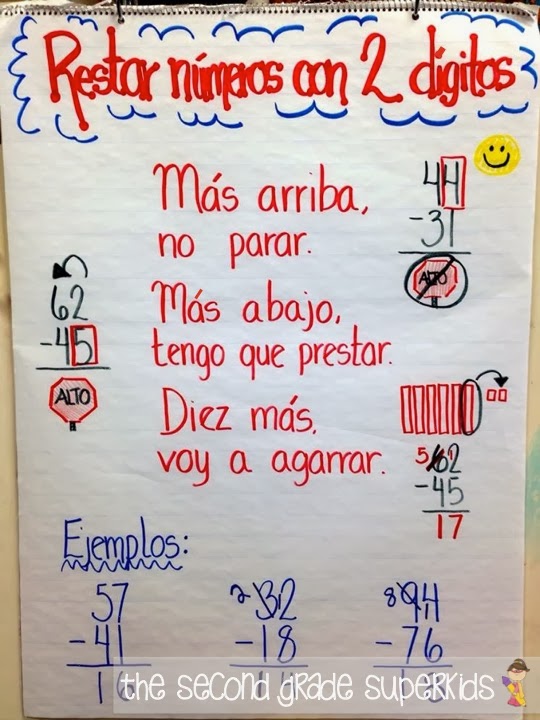 Restar números con 2 dígitos
Más arriba,
no parar.
44
-31
ALTO
Más abajo,
tengo que prestar.
62
-45
ALTO
Diez más,
voy a agarrar.
5 1
62
-45
17
Ejemplos:
57
-41
16
2 1
32
-18
14
8 1
94
-76
18
the second grade superkids